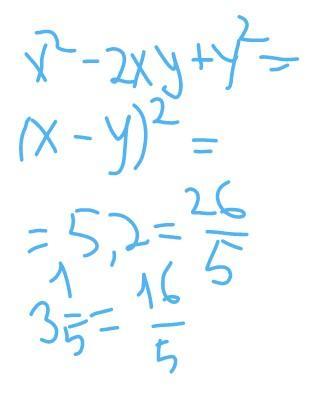 x² - 2xy + y² =
(x - y)² =
= 5,2 = 26/5
3 1/5 = 16/5